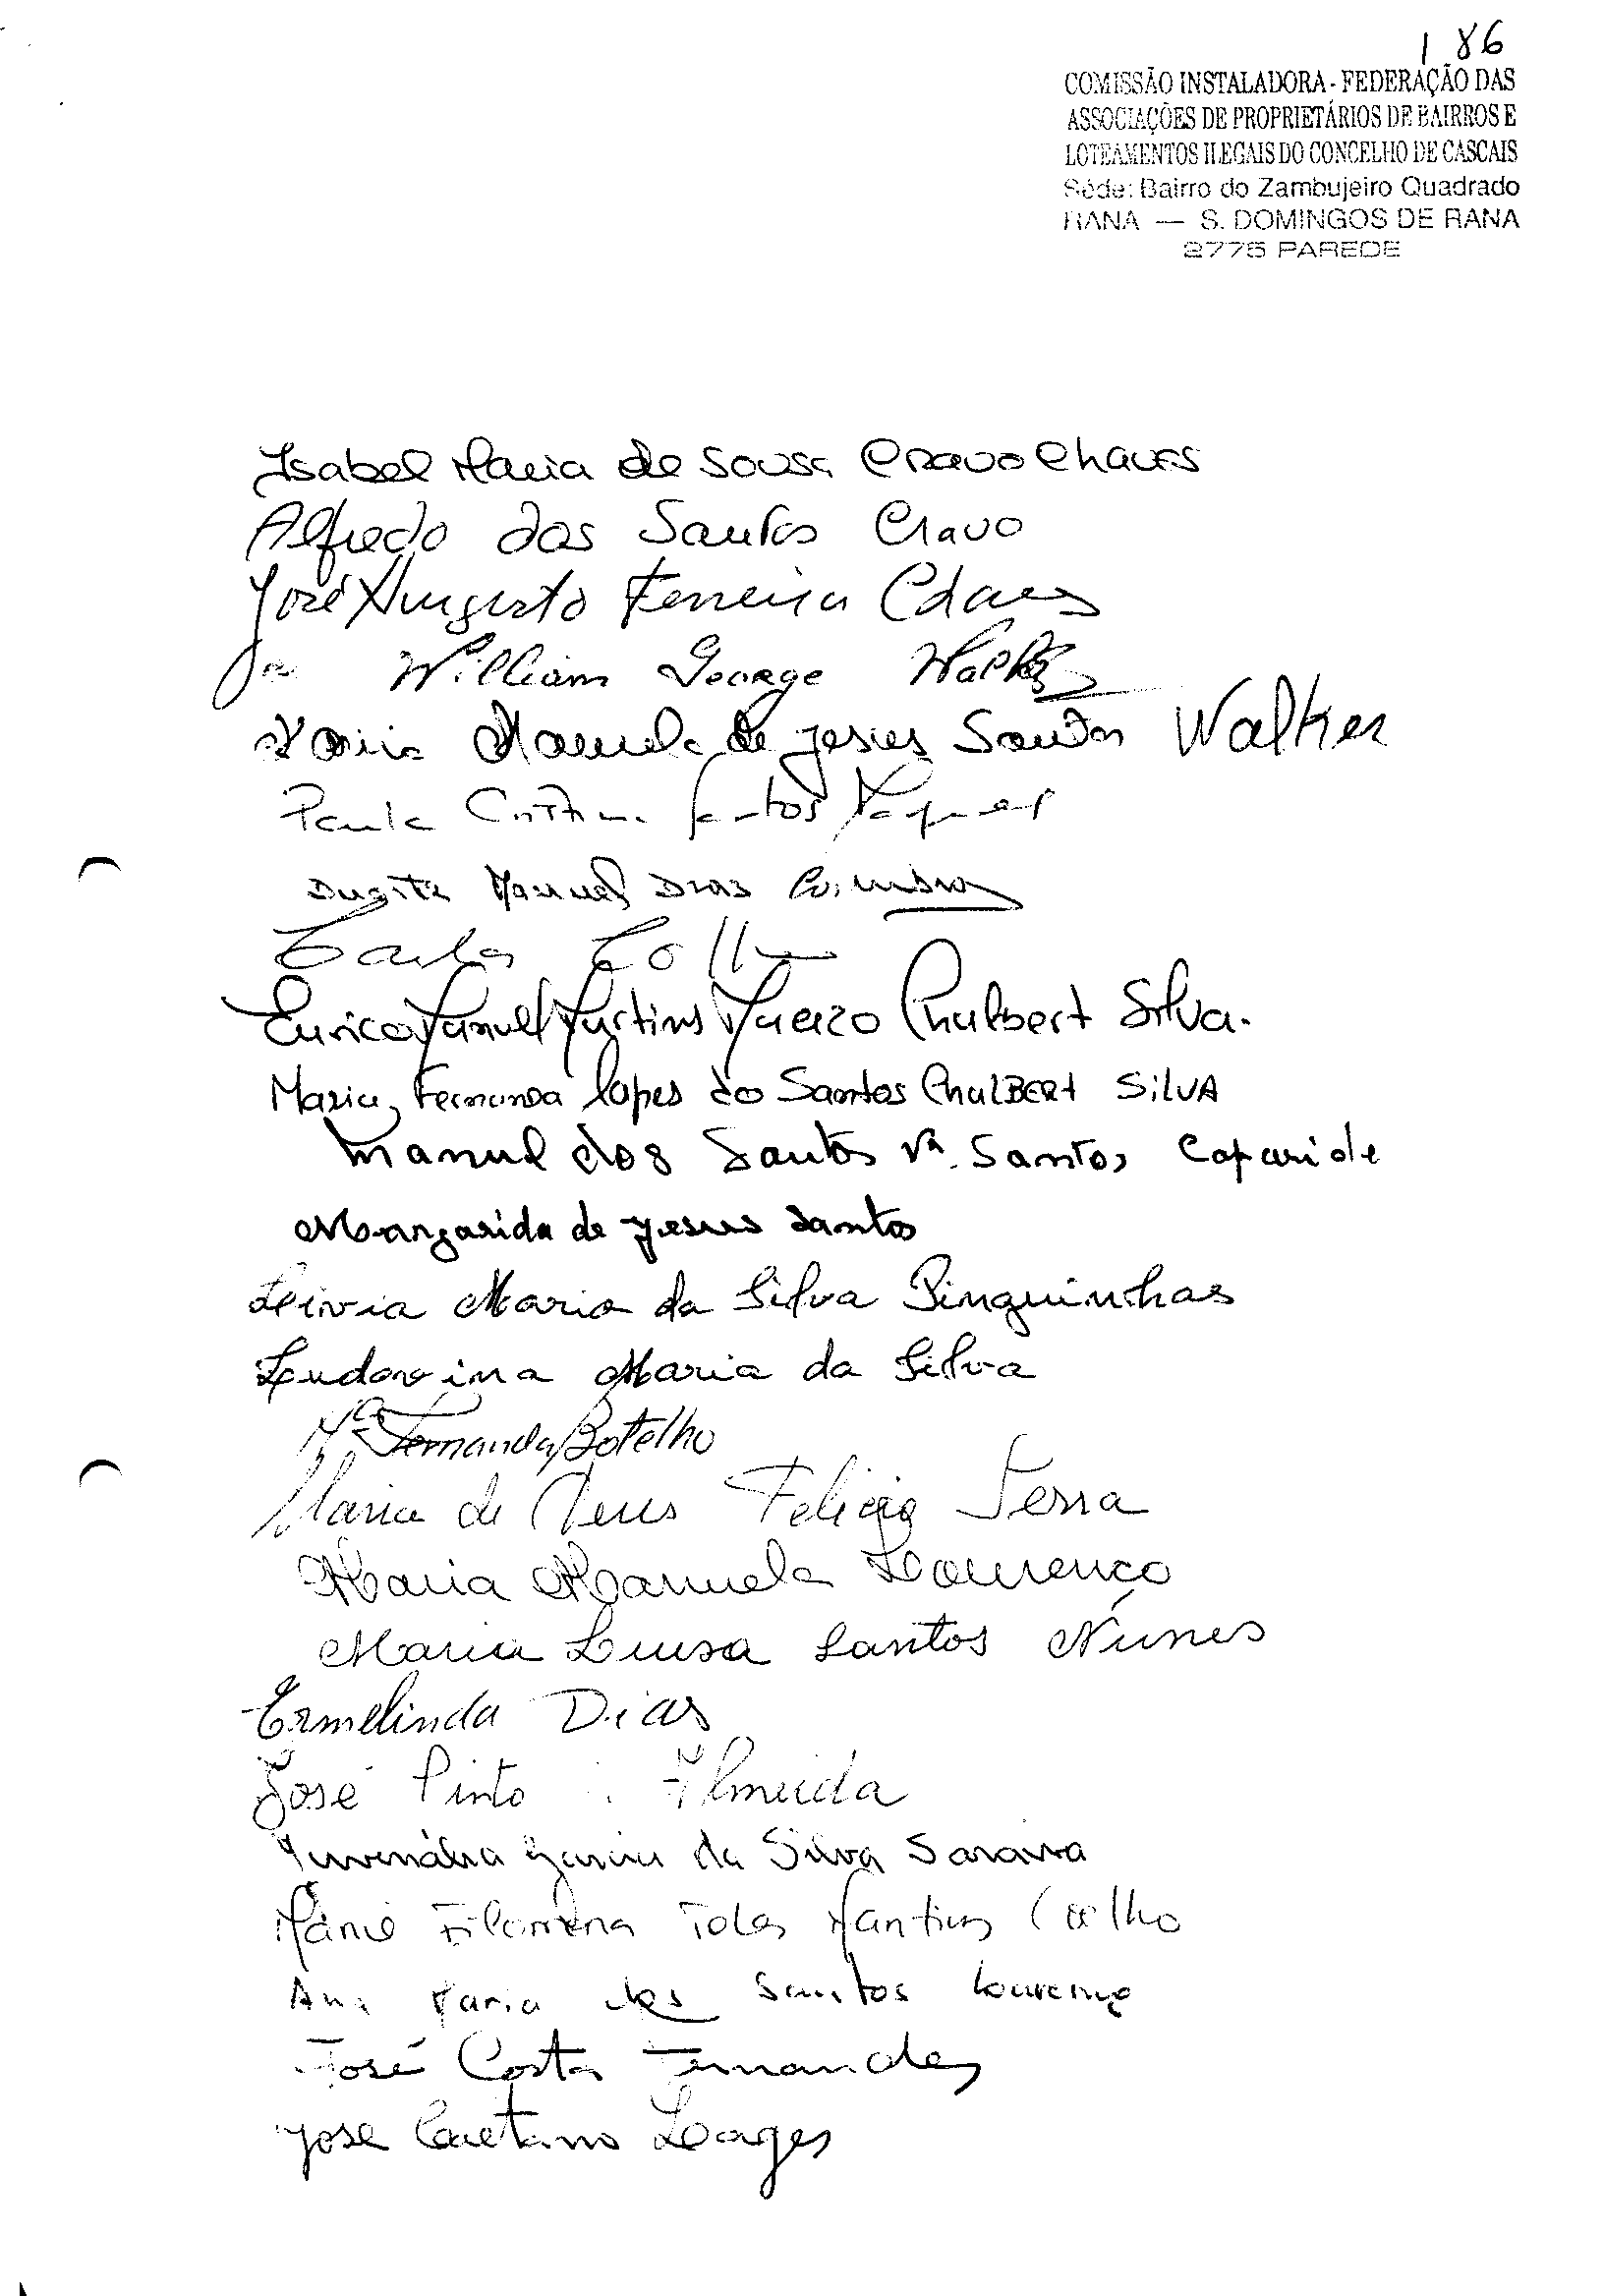 186
COMISSÃO INSTALADORA - FEDERAÇÃO DAS
ASSOCIAÇÕES DE PROPRIETÁRIOS DE BAIRROS E
LOTEAMENTOS ILEGAIS DO CONCELHO DE CASCAIS
Séde: Bairro do Zambujeiro Quadrado
RANA — S. DOMINGOS DE RANA
2775 PAREDE
Isabel Maria de Sousa Cravo Chaves
Alfredo dos Santos Cravo
José Augusto Ferreira Chaves
William George Walker
Maria Manuela de Jesus Santos Walker
Paula Cristina Santos
Duarte Manuel Dias Coimbra
Carlos
Eurico Manuel Martins Chalbert Silva.
Maria Fernanda Lopes do Santos Chalbert Silva
Manuel dos Santos Vª. Santos, Caparide
Margarida de Jesus Santos
Livia Maria da Silva Pinguinhas
Ludovina Maria da Silva
Mª Fernanda Botelho
Maria de Deus Felicia Serra
Maria Manuela Lourenço
Maria Luisa Santos Núnes
Ermelinda Dias
José Pinto Almeida
Juvenália Garcia da Silva Saraiva
Maria Filomena Martins Coelho
Ana Maria dos Santos Lourenço
José Costa Fernandes
José Caetano Lages